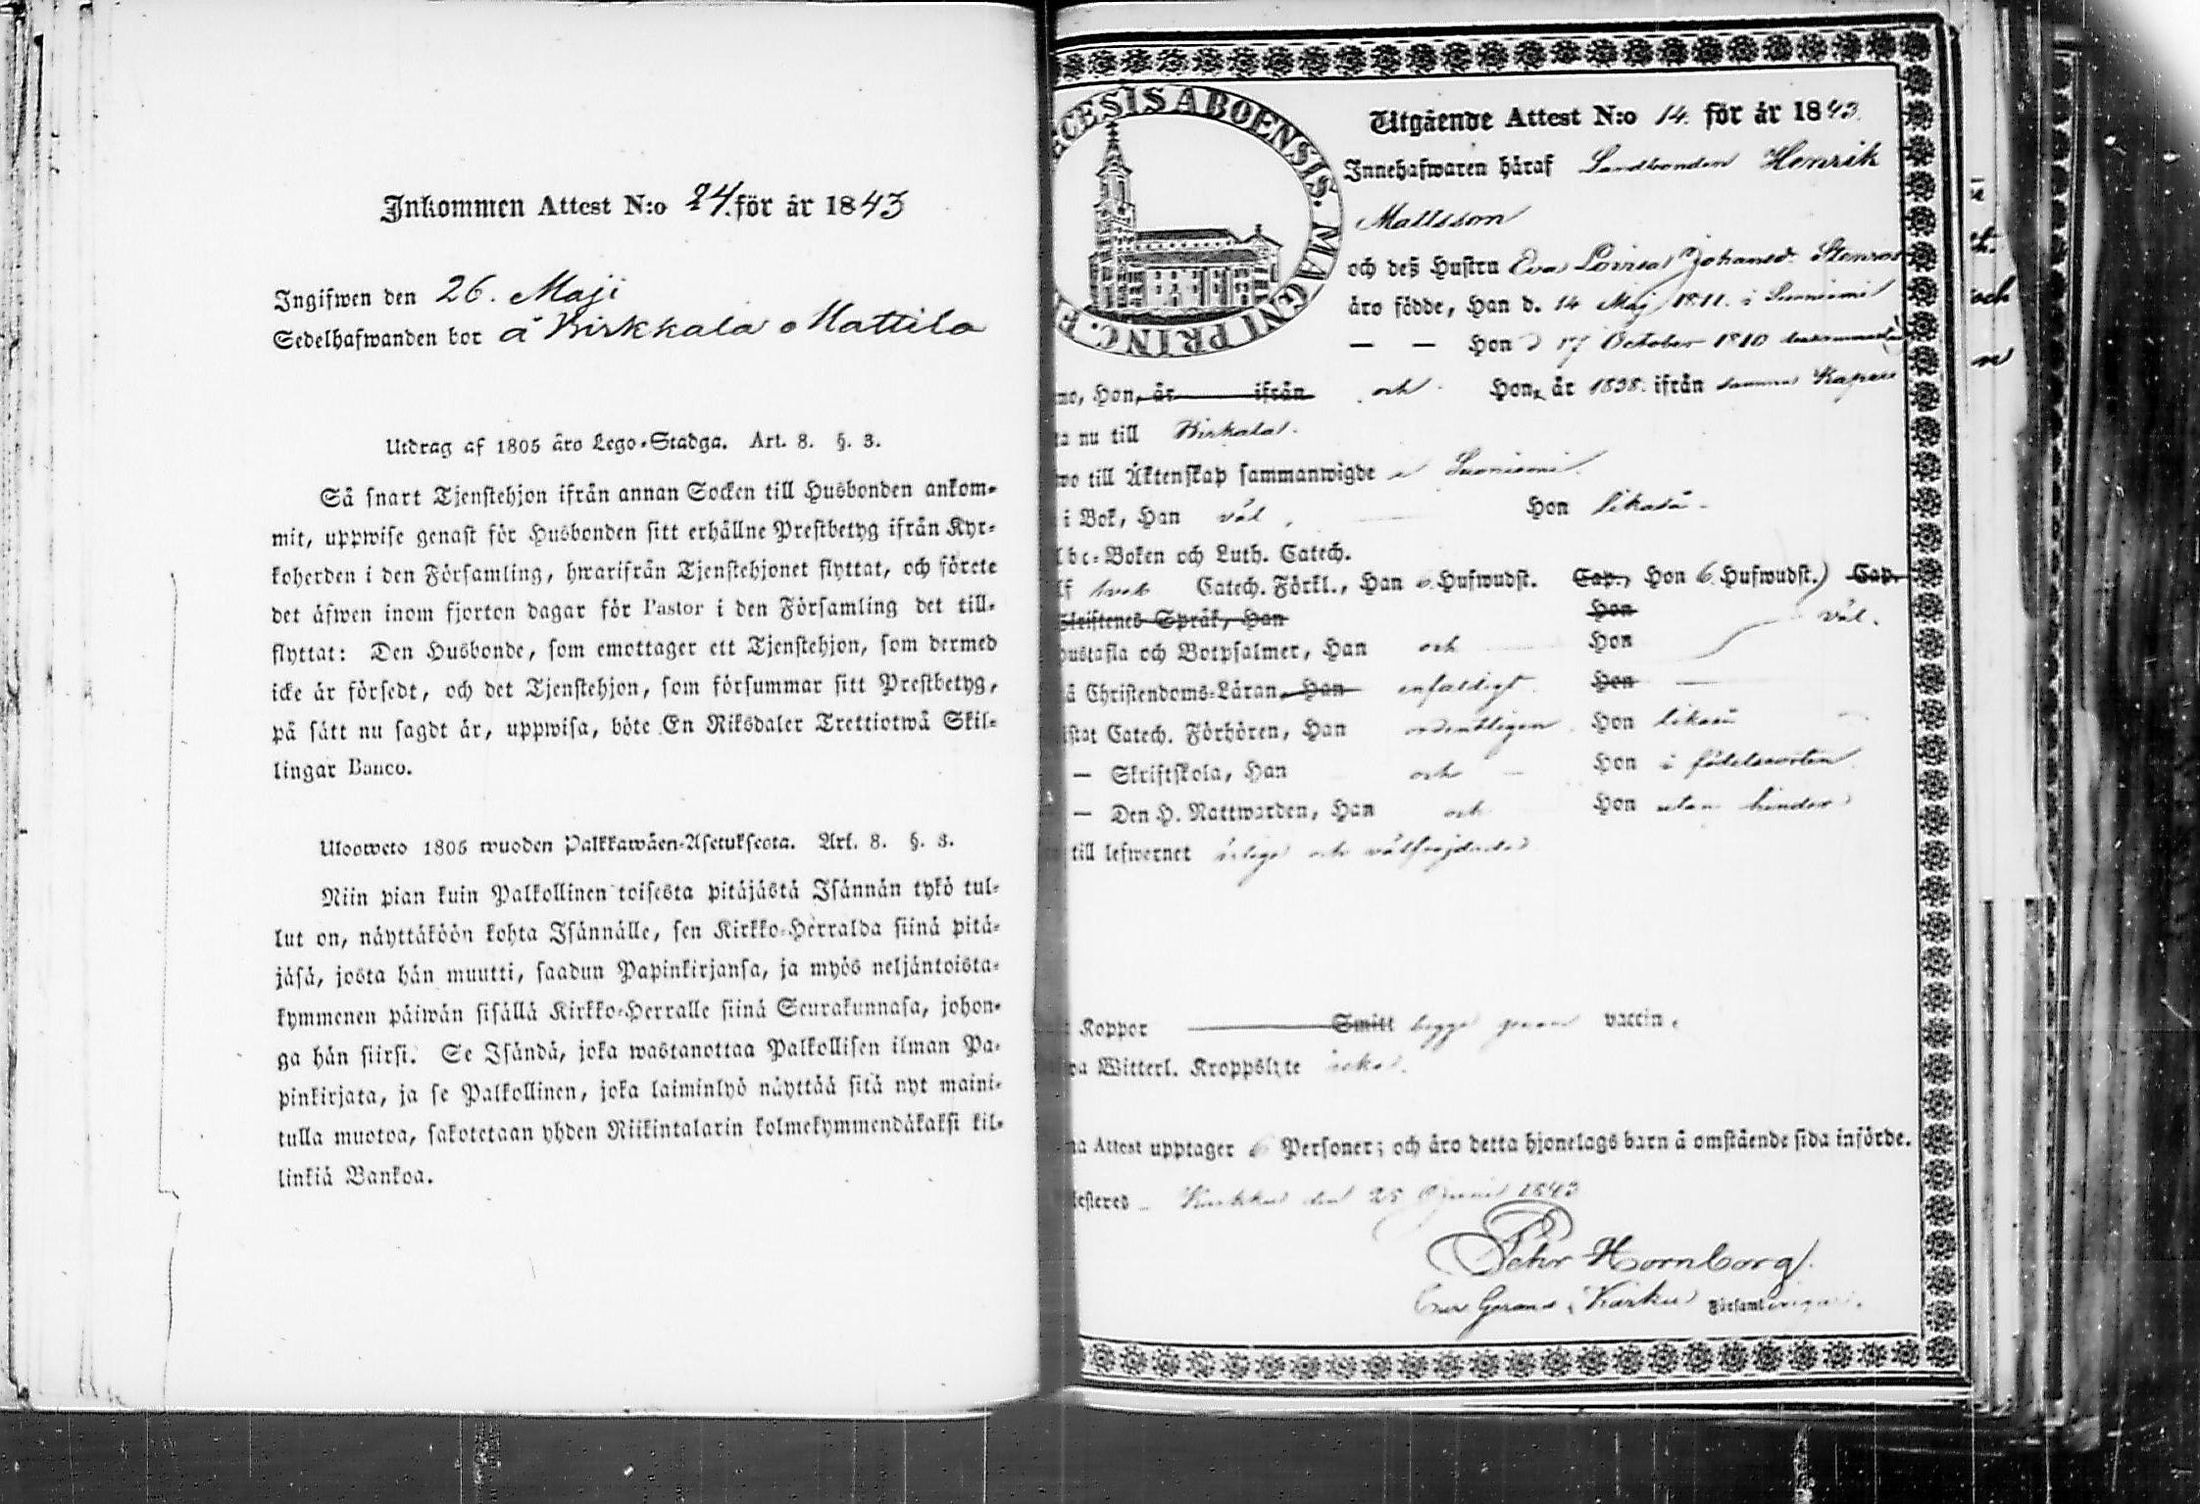 Inkommen Attest N:o 24. för år 1843
Ingifwen den 26. Maji
Sedelhafwanden bor å Birkkala Mattila
Utdrag af 1805 års Lego-Stadga. Art. 8. §. 3.
Så snart Tjenstehjon ifrån annan Socken till Husbonden ankom-
mit, uppwise genast för Husbonden sitt erhållne Prestbetyg ifrån Kyr-
koherden i den Församling, hwarifrån Tjenstehjonet flyttat, och förete
det äfwen inom fjorton dagar för Pastor i den Församling det till-
flyttat: Den Husbonde, som emottager ett Tjenstehjon, som dermed
icke är försedt, och det Tjenstehjon, som försummar sitt Prestbetyg,
på sätt nu sagdt är, uppwisa, böte En Riksdaler Trettiotwå Skil-
lingar Banco.
Ulosweto 1805 wuoden Palkkawäen-Asetuksesta. Art. 8. §. 3.
Niin pian kuin Palkollinen toisesta pitäjästä Isännän tykö tul-
lut on, näyttäköön kohta Isännälle, sen Kirkko-Herralda siinä pitä-
jäsä, josta hän muutti, saadun Papinkirjansa, ja myös neljäntoista-
kymmenen päiwän sisällä Kirkko-Herralle siinä Seurakunnasa, johon-
ga hän siirsi. Se Isändä, joka wastanottaa Palkollisen ilman Pa-
pinkirjata, ja se Palkollinen, joka laiminlyö näyttää sitä nyt maini-
tulla muotoa, sakotetaan yhden Riikintalarin kolmekymmendäkaksi kil-
linkiä Bankoa.
ECESIS ABOENSIS. MAGNI PRINC. F
Utgående Attest N:o 14. för år 1843.
Innehafwaren häraf Landbonden Henrik
Mattsson
och deß Hustru Eva Lovisa Johansd. Stenros
äro födde, Han d. 14 Maj 1811. i Suoniemi
— — Hon d 17 October 1810
mo, Hon, är ifrån och Hon, år 1838. ifrån samma Kapell
ta nu till Birkala.
wo till Äktenskap sammanwigde i Suoniemi
i Bok, Han väl, Hon likaså
Abc-Boken och Luth. Catech.
Catech. Förkl., Han 6 Hufwudst. Cap., Hon 6. Hufwudst.) Cap.
Skriftenes Språk, Han Hon väl.
Hustafla och Botpsalmer, Han och Hon
å Christendoms-Läran, Han enfaldigt Hon
istat Catech. Förhören, Han ordentligen Hon likaså
— Skriftskola, Han och Hon i födelseorten
— Den H. Nattwarden, Han och Hon utan hinder
till lefwernet ärliga och välfrejdade
Koppor Smitt begge genom vaccin.
wa Witterl. Kroppslyte icke.
na Attest upptager 6 Personer; och äro detta hjonelags barn å omstående sida införde.
testeres Karkku den 25 1843
Pehr Hornborg.
Karku Församl.